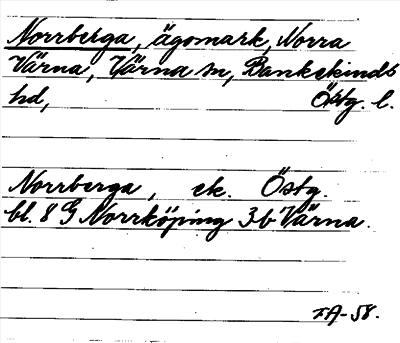 Norrberga, ägomark, Norra
Värna, Värna sn, Bankekinds
hd, Östg. l.
Norrberga, ek. Östg.
bl. 8 G Norrköping 3b Värna.
FA-58.